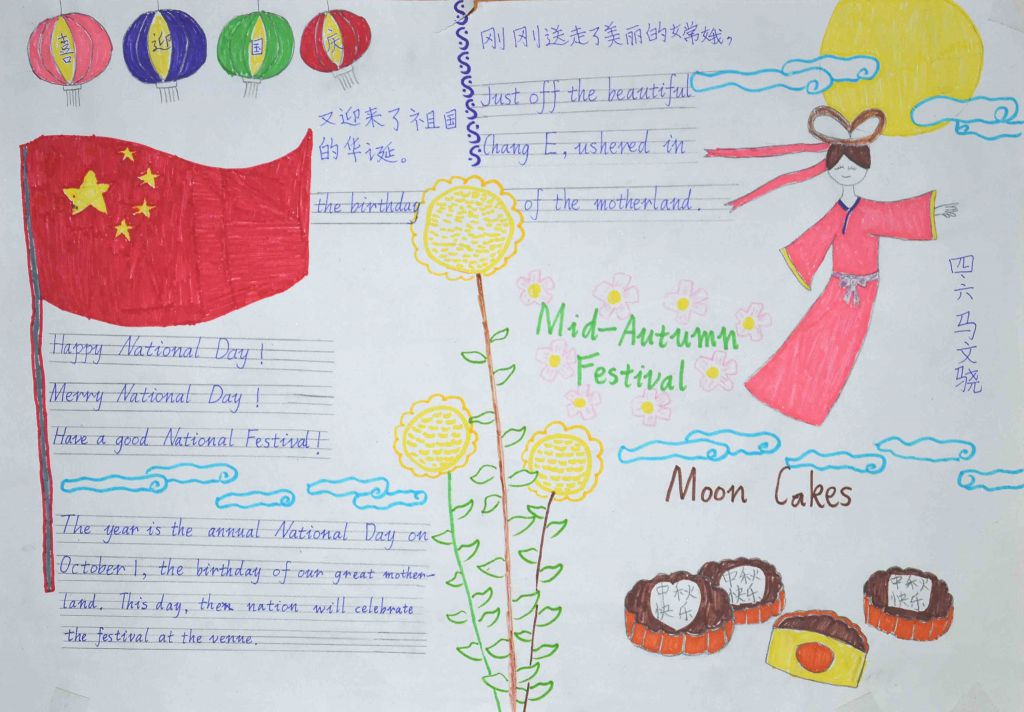 喜迎国庆
刚刚送走了美丽的嫦娥，
又迎来了祖国
的华诞。
Just off the beautiful
Chang E, ushered in
the birthday of the motherland.
Happy National Day!
Merry National Day!
Have a good National Festival!
The year is the annual National Day on
October 1, the birthday of our great mother-
land. This day, then nation will celebrate
the festival at the venne.
Mid-Autumn
Festival
四、六 马文骁
Moon Cakes
中秋
快乐
中秋
快乐
中秋
快乐